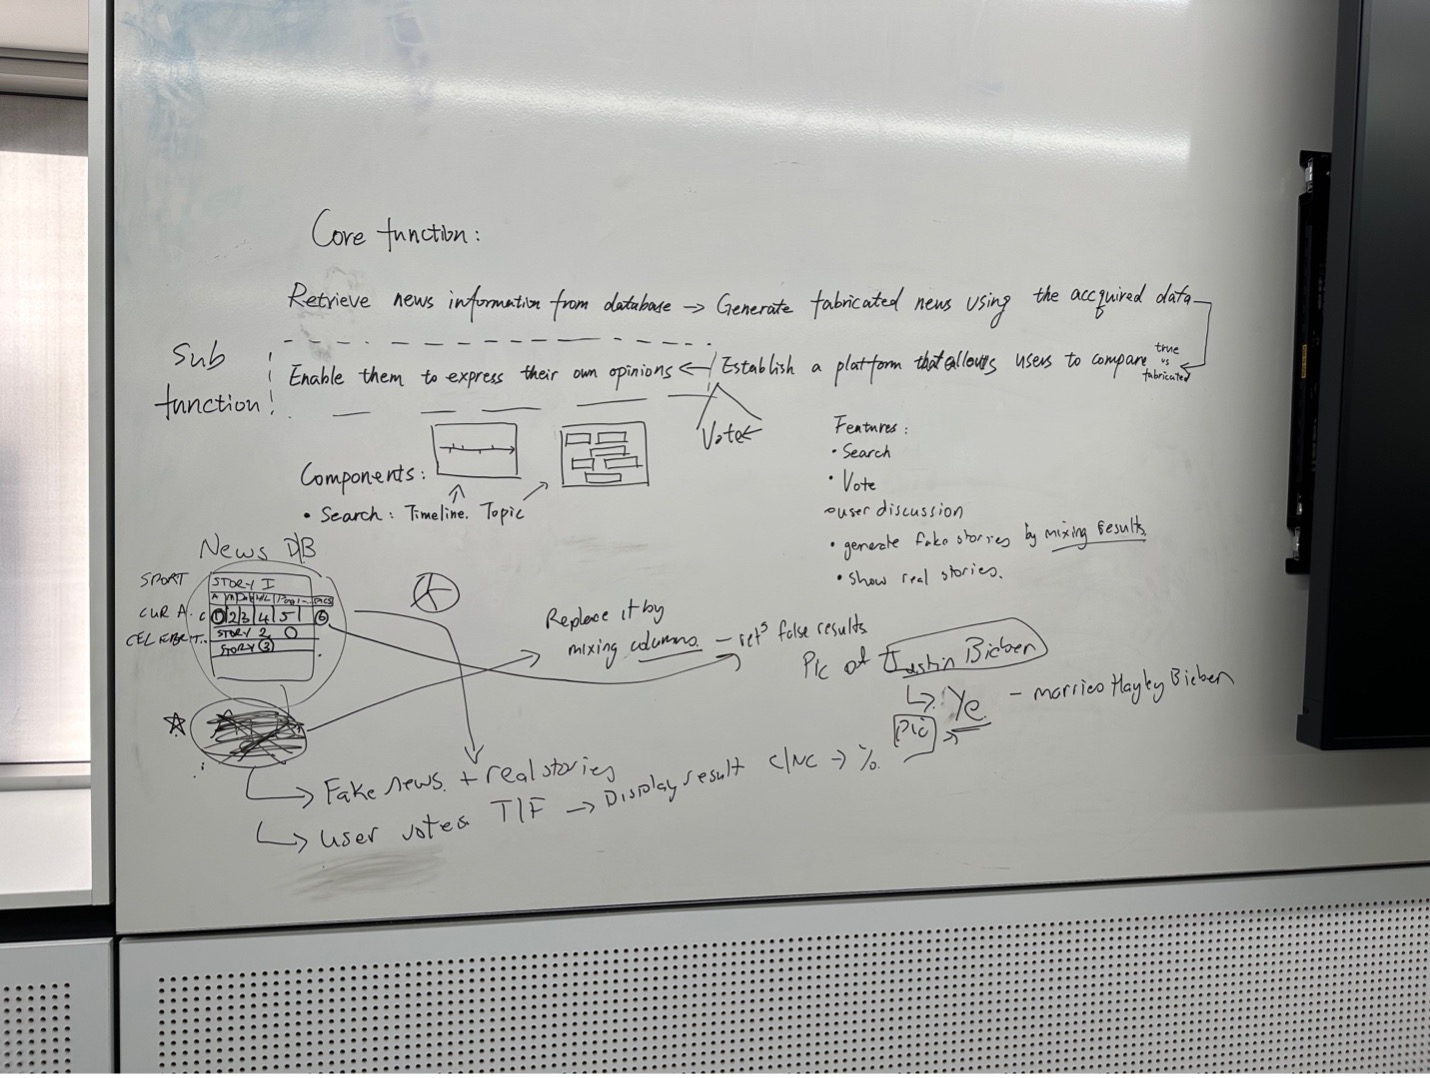 Core function:
Retrieve news information from database → Generate fabricated news using the accquired data
Sub
function
Enable them to express their own opinions ← Establish a platform that allows users to compare true vs fabricated
Vote
Features:
• Search
• Vote
• user discussion
• generate fake stories by mixing results
• show real stories.
Components:
• Search: Timeline. Topic
News DB
SPORT
STORY I
CUR A.
C 1 2 3 4 5 6
STORY 2
STORY 3
Replace it by
mixing columns — ret^s false results
Pic of Justin Bieber
↳ Ye — married Hayley Bieber
Pic →
→ Fake news + real stories
→ user votes T/F → Display result C/NC → %